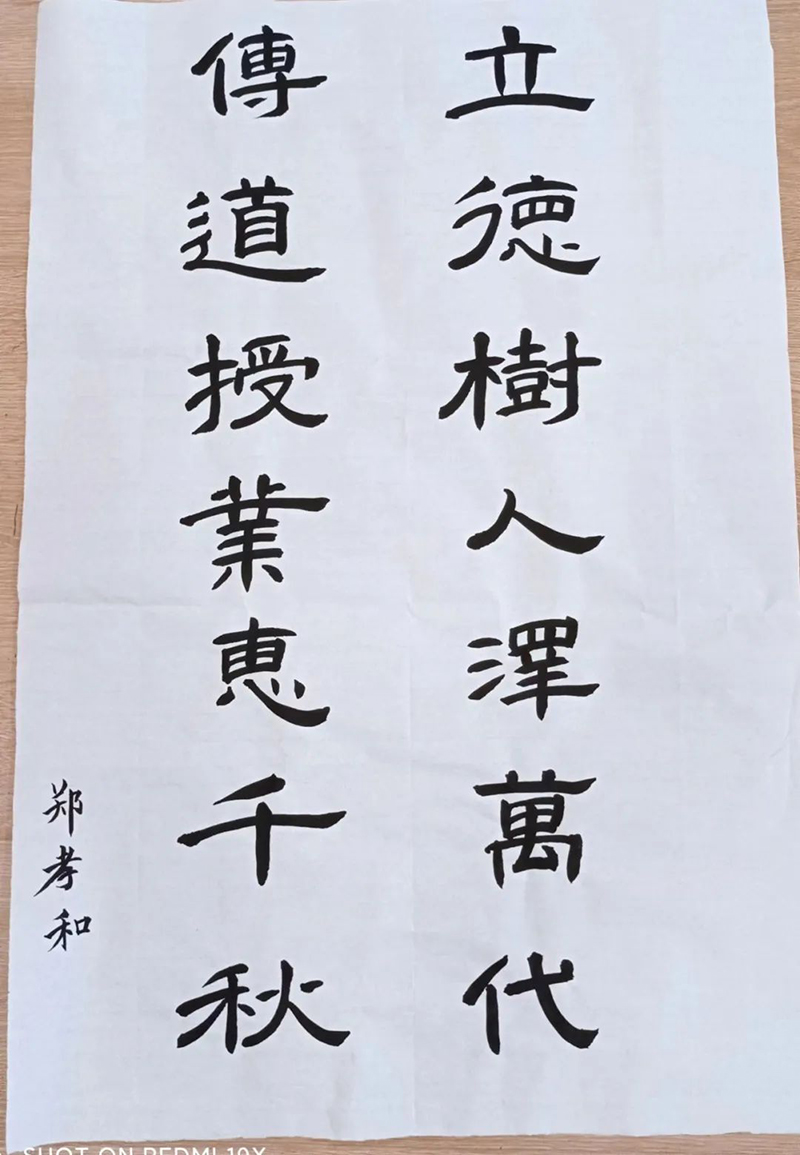 立德樹人澤萬代
傳道授業惠千秋
郑孝和
SHOT ON REDMI 10X